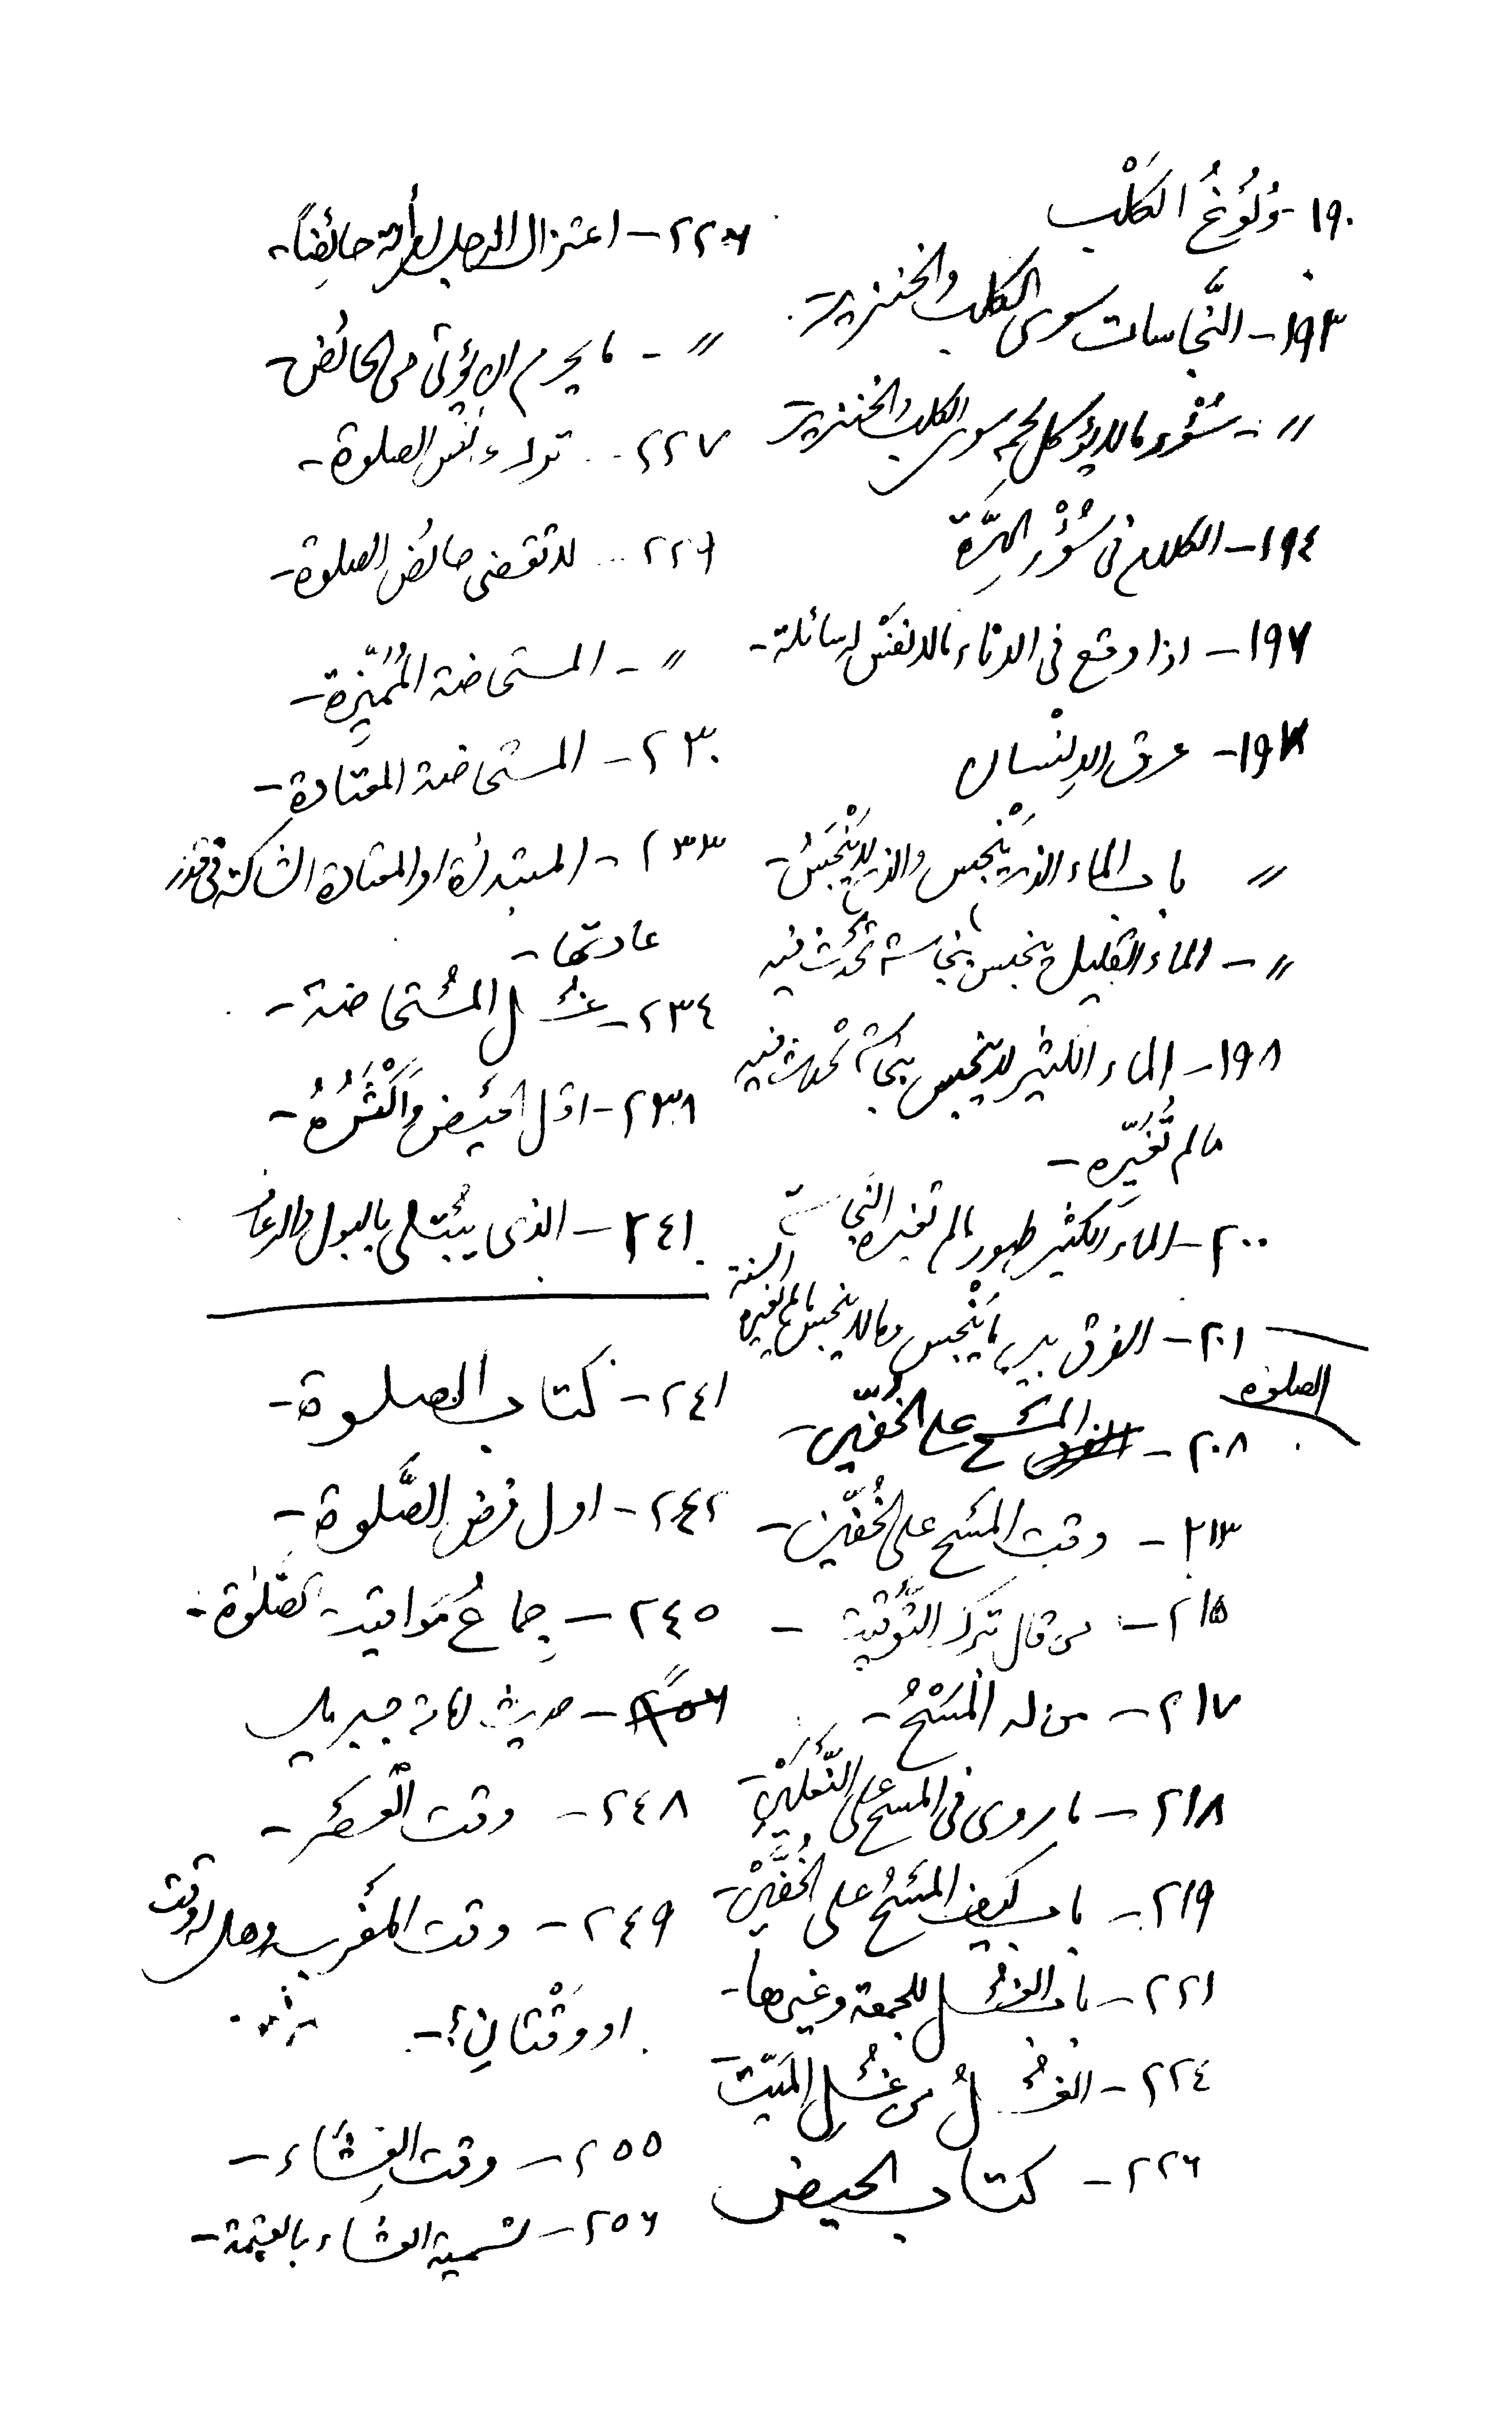 ١٩٠- وُلُوْغُ الكَلْب
١٩٣- النَّجاسات سوى الكلب والخنزير-
〃- سُؤْر مالا يؤكل لحمه سوى الكلب والخنزير-
١٩٤- الكلام فى سُؤْر الهِرَّة
١٩٧- اذا وقع فى الاناء مالا نفس له سائلة-
١٩٧- عرق الاِنْسان
〃 باب الماء الذى يَنْجس والذى لا يَنْجَسُ-
〃- الماء القليل ينجس بنجاسة تحدُث فيه
١٩٨- الماء الكثير لا ينجس بنجاسة تحْدث فيه
مالم تُغَيِّره-
٢٠٠- الماءَ الكثير طهور مالم تغيره النَّجاسة
٢٠١- الفرق بين ما يَنْجس وما لا ينجس مالم يغيره
الصلوة
٢٠٨- المَسْح على الخُفَّين-
٢١٣- وقت المَسْح على الخُفَّين-
٢١٥- من قال بترك التَّوْقيت-
٢١٧- من له المَسْحُ-
٢١٨- ما روى فى المسح على النَّعْلَيْن-
٢١٩- باب كيف المَسْحُ على الخُفَّيْن-
٢٢١- باب الغُسْل للجمعة وغيرها-
٢٢٤- الغُسْلُ من غُسْلِ المَيِّت-
٢٢٦- كتاب الحيض
٢٢٦- اعتزال الرجل امرأته حائِضاً-
〃- ما يحرم ان يؤتى من الحائض-
٢٢٧- ترك الصلوة-
٢٢٩- لا تقضى حائض الصلوة-
〃- المستحاضة المُمَيِّزة-
٢٣٠- المستحاضة المعتادة-
٢٣٣- المبتدئة او المعتادة الشاكة فى قدر
عادتها-
٢٣٤- غُسْل المُسْتحاضة-
٢٣٨- اقل الحَيْض وَاَكْثَرُهُ-
٢٤١- الذى يُبْتلى بالبول والرعاف
٢٤١- كتاب الصلوة-
٢٤٢- اول فرض الصَّلوة-
٢٤٥- جِماعُ مَواقيت الصَّلوٰة-
〃- حديث امامة جبريل
٢٤٨- وقت الْعَصْر-
٢٤٩- وقت المَغْرب وهل له وقت
او وَقْتانِ؟-
٢٥٥- وقت العِشَاء-
٢٥٦- تسمية العشاء بالعتمة-